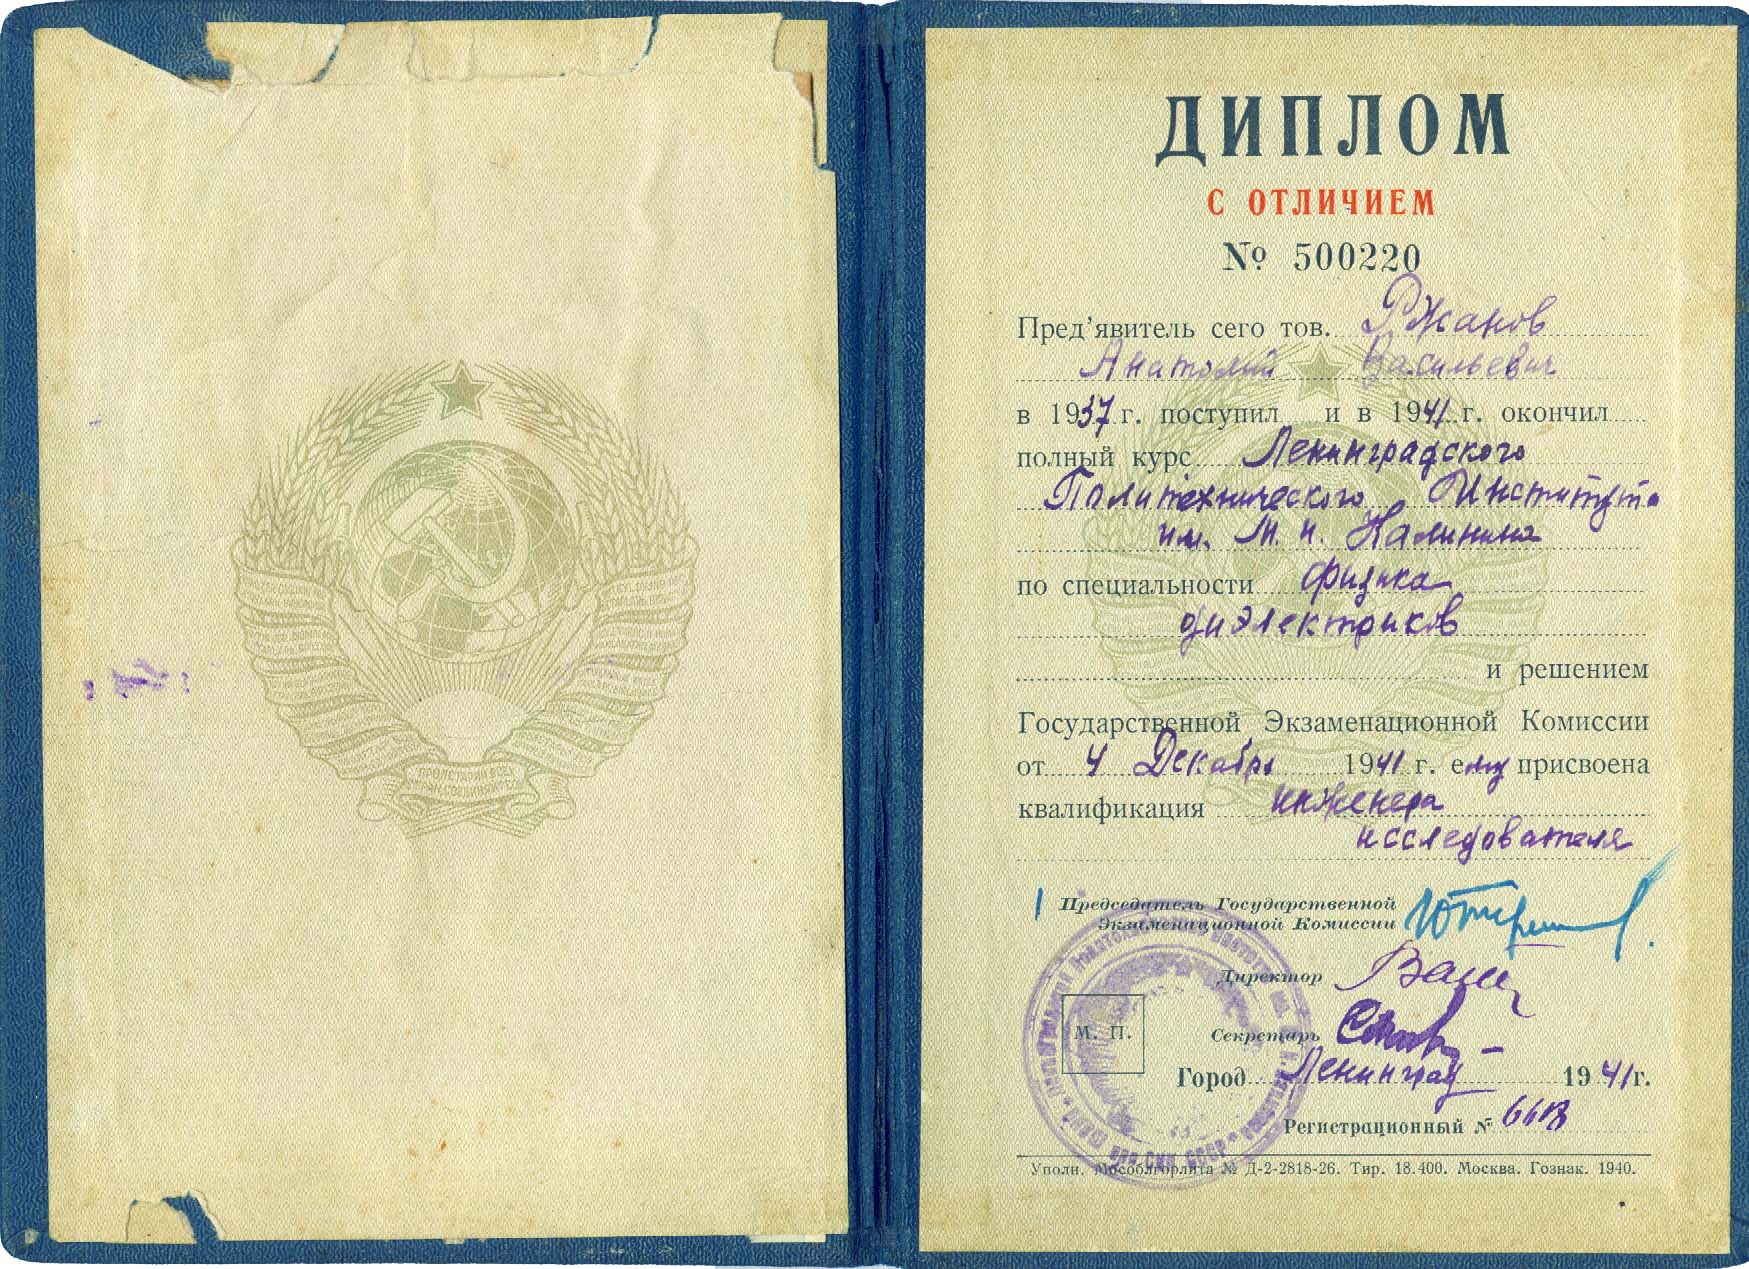 ПРОЛЕТАРИИ ВСЕХ
ДИПЛОМ
С ОТЛИЧИЕМ
№ 500220
Пред’явитель сего тов. Ржанов
Анатолий Васильевич
в 1937 г. поступил и в 1941 г. окончил
полный курс Ленинградского
Политехнического Института
им. М. И. Калинина
по специальности физика
диэлектриков
и решением
Государственной Экзаменационной Комиссии
от 4 Декабря 1941 г. ему присвоена
квалификация инженера
исследователя
Председатель Государственной
Экзаменационной Комиссии
Директор
М. П.
Секретарь
Город Ленинград 1941 г.
Регистрационный №
Уполн. Мособлгорлита № Д-2-2818-26. Тир. 18.400. Москва. Гознак. 1940.